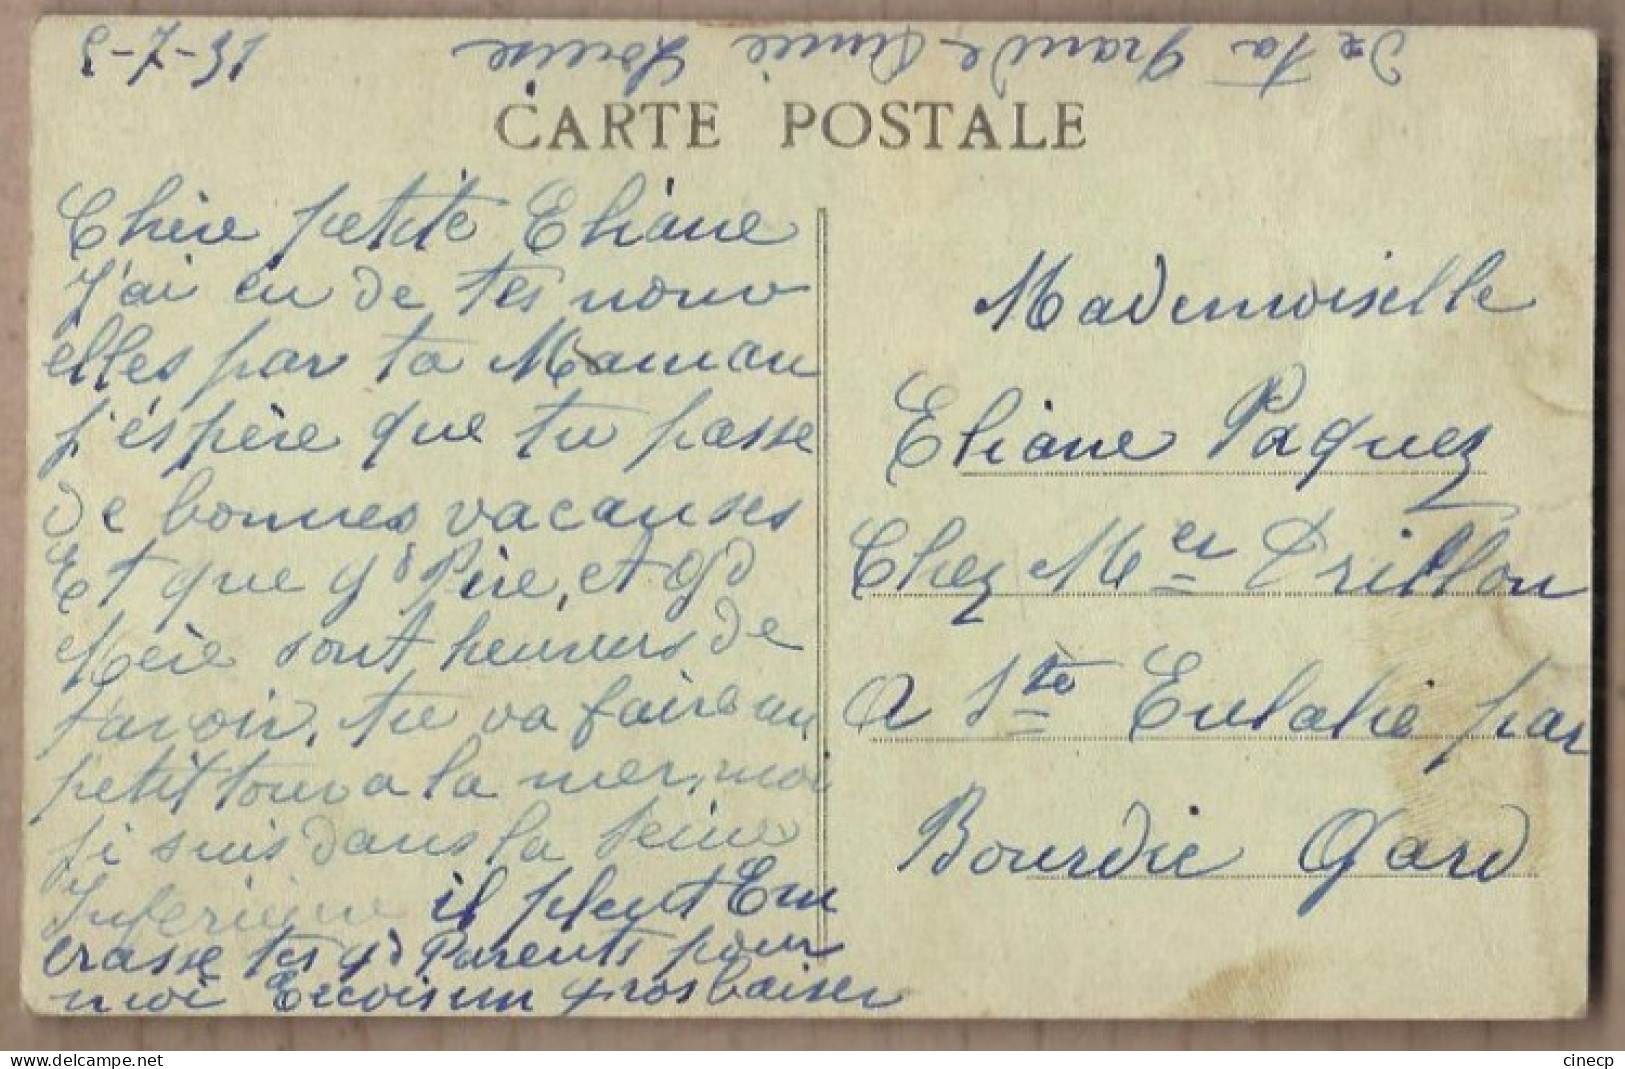 3-7-31
De ta Grande Amie Louise
CARTE POSTALE
Chère petite Eliane
J'ai eu de tes nouv
elles par ta Maman
j'éspère que tu passe
de bonnes vacanses
Et que gd Père, et gd
Mère sont heureus de
t'avoir, tu va faire un
petit tour a la mer, moi
je suis dans la Seine
Inferieure il pleut Em
brasse tes gd Parents pour
moi Recois un gros baiser
Mademoiselle
Eliane Paquez
Chez Mer Drillon
A Ste Eulalie par
Bourdic Gard
cinecp